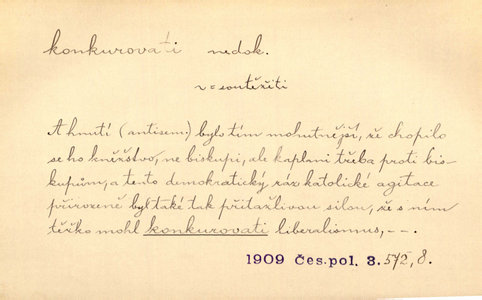 konkurovati nedok.
v = soutěžiti
A hnutí (antisem.) bylo tím mohutnější, že chopilo
se ho kněžstvo, ne biskupi, ale kaplani třeba proti bis-
kupům, a tento demokratický ráz katolické agitace
přirozeně byl také tak přitažlivou silou, že s ním
těžko mohl konkurovati liberalismus, - -.
1909 Čes. pol. 3. 572, 8.